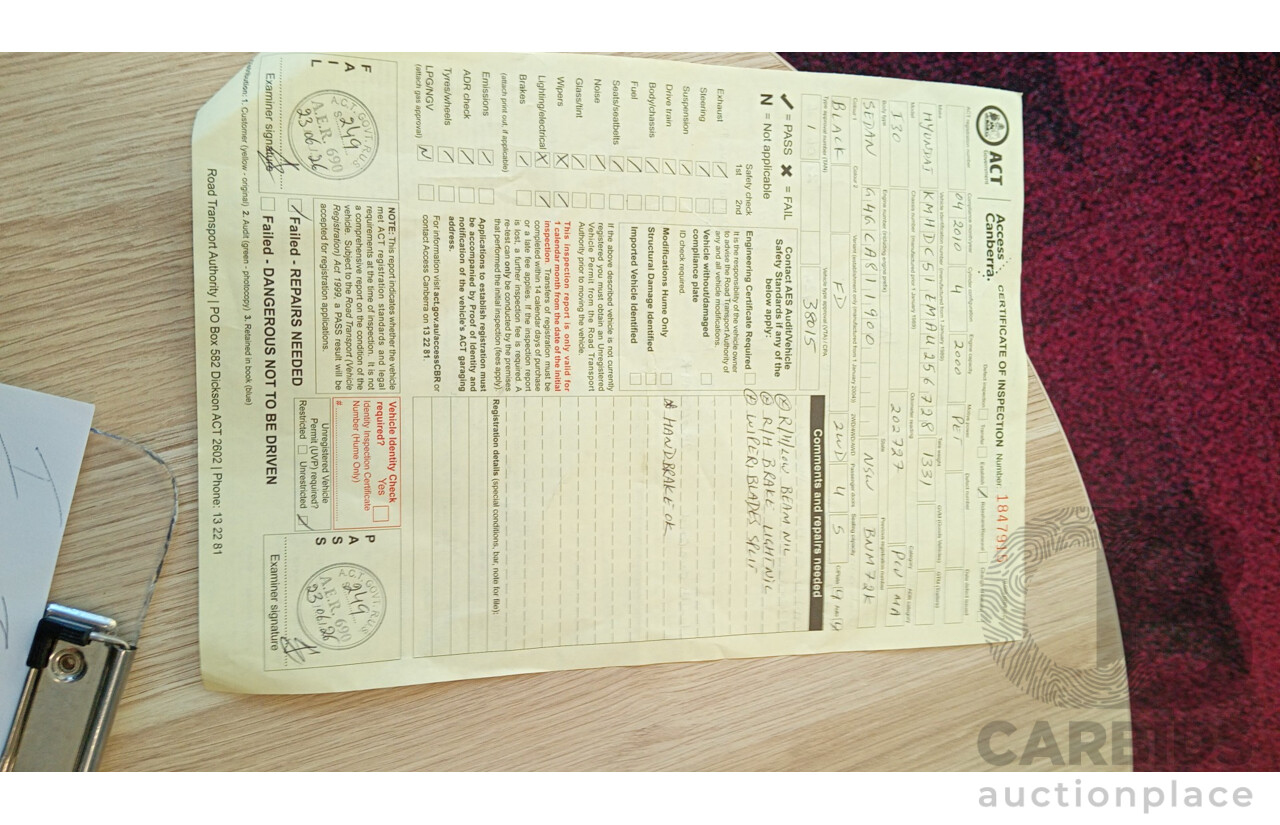 ACT
Government
Access
Canberra.
CERTIFICATE OF INSPECTION Number: 1847919
04 2010 4 2000 PET
HYUNDAI KMHDC51EMAU256728 1331
I30 202727 PCV MA
SEDAN G4GCA811900 NSW BNM72K
BLACK FD 2WD 4 5
38015
✓ = PASS ✗ = FAIL
N = Not applicable
Safety check
1st 2nd
Exhaust
Steering
Suspension
Drive train
Body/chassis
Fuel
Seats/seatbelts
Noise
Glass/tint
Wipers
Lighting/electrical
(attach print out, if applicable)
Brakes
Emissions
ADR check
Tyres/wheels
LPG/NGV N
(attach gas approval)
Contact AES Audit/Vehicle
Safety Standards if any of the
below apply:
Engineering Certificate Required
It is the responsibility of the vehicle owner
to advise the Road Transport Authority of
any and all vehicle modifications.
Vehicle without/damaged
compliance plate
Modifications Hume Only
ID check required.
Structural Damage Identified
Imported Vehicle Identified
If the above described vehicle is not currently
registered you must obtain an Unregistered
Vehicle Permit from the Road Transport
Authority prior to moving the vehicle.
This inspection report is only valid for
1 calendar month from the date of the initial
inspection. Transfers of registration must be
completed within 14 calendar days of purchase
or a late fee applies. If the inspection report
is lost, a further inspection fee is required. A
re-test can only be conducted by the premises
that performed the initial inspection (fees apply)
Applications to establish registration must
be accompanied by Proof of Identity and
notification of the vehicle's ACT garaging
address.
For information visit act.gov.au/accessCBR or
contact Access Canberra on 13 22 81
Comments and repairs needed
R/H/LOW BEAM NIL
R/H BRAKE LIGHT NIL
WIPER BLADES SPLIT
* HANDBRAKE OK
Registration details (special conditions, bar, note for file):
FAIL
A.C.T. GOVT. R.U.S.
249
A.E.R. 690
23/06/26
Examiner signature
NOTE: This report indicates whether the vehicle
met ACT registration standards and legal
requirements at the time of inspection. It is not
a comprehensive report on the condition of the
vehicle. Subject to the Road Transport (Vehicle
Registration) Act 1999, a PASS result will be
accepted for registration applications.
Failed - REPAIRS NEEDED
Failed - DANGEROUS NOT TO BE DRIVEN
Vehicle Identity Check
required? Yes
Identity Inspection Certificate
Number (Hume Only)
#
Unregistered Vehicle
Permit (UVP) required?
Restricted Unrestricted
PASS
A.C.T. GOVT. R.U.S.
249
A.E.R. 690
23/06/26
Examiner signature
1. Customer (yellow - original) 2. Audit (green - photocopy) 3. Retained in book (blue)
Road Transport Authority | PO Box 582 Dickson ACT 2602 | Phone: 13 22 81
CARBIDS
auctionplace